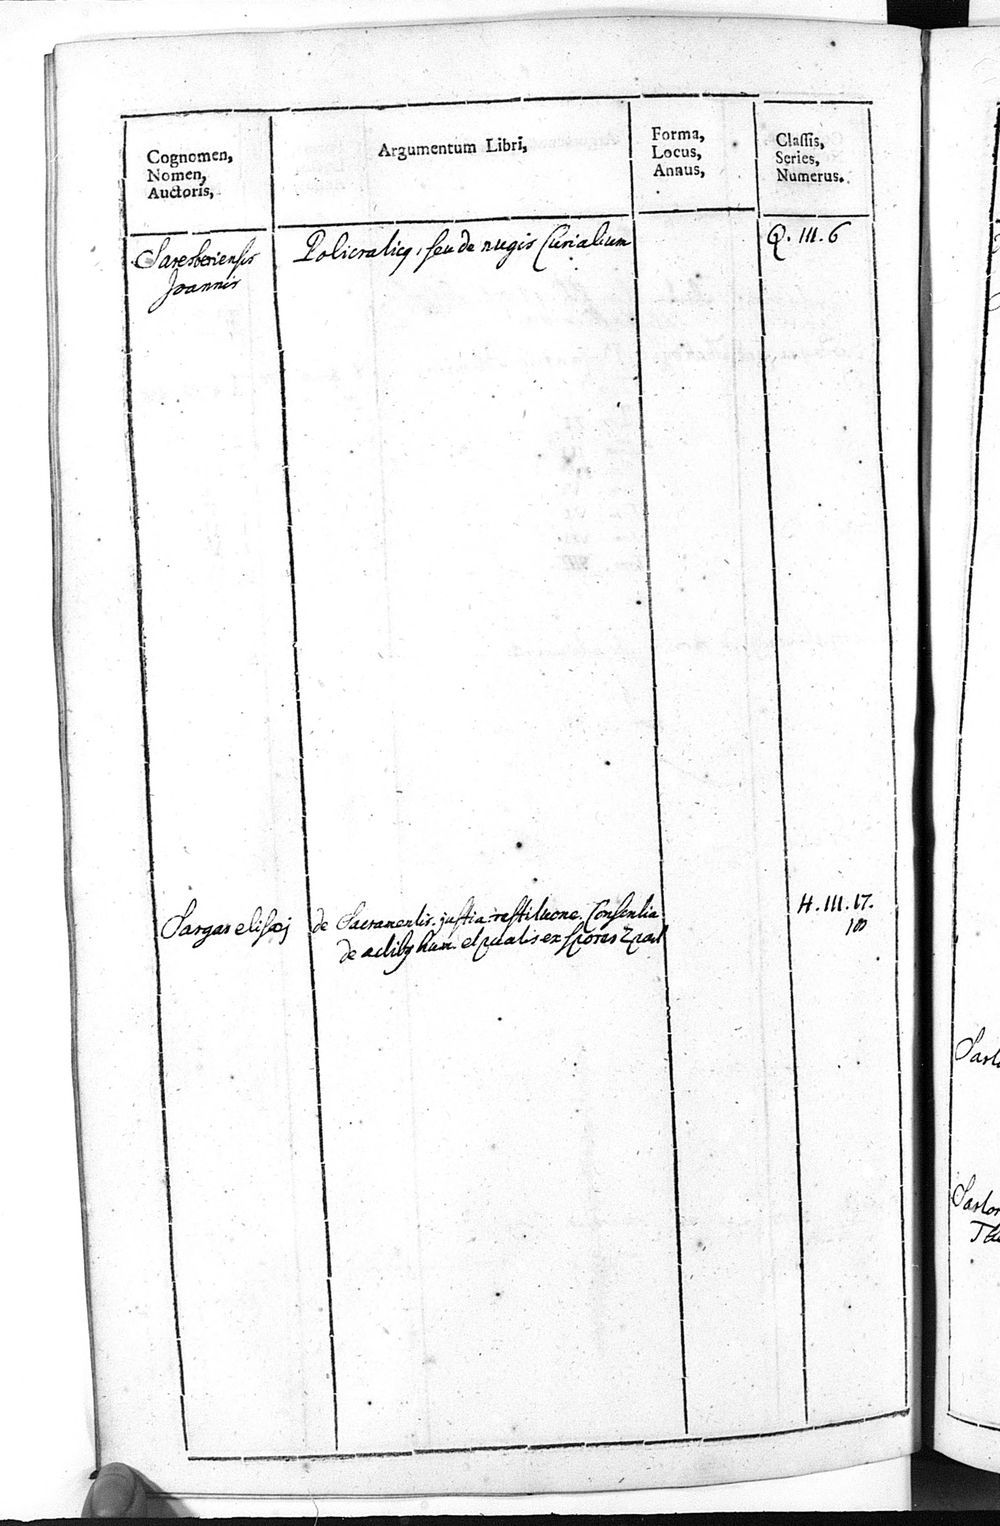 Cognomen,
Nomen,
Auctoris,
Argumentum Libri,
Forma,
Locus,
Annus,
Classis,
Series,
Numerus.
Saresberiensis
Joannis
Policraticq, seu de nugis Curialium
Q. III. 6
Sargar
de Sacramentis. justia restitucone. Consentia
de actibq hum. et
H. III. 17.
18
Sarto
Sartor